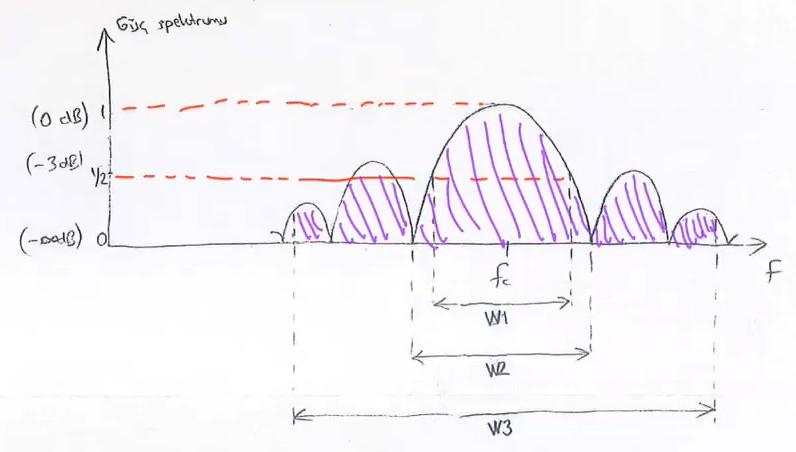 Güç spektrumu
(0 dB) 1
(-3dB) 1/2
(-∞dB) 0
fc
f
W1
W2
W3